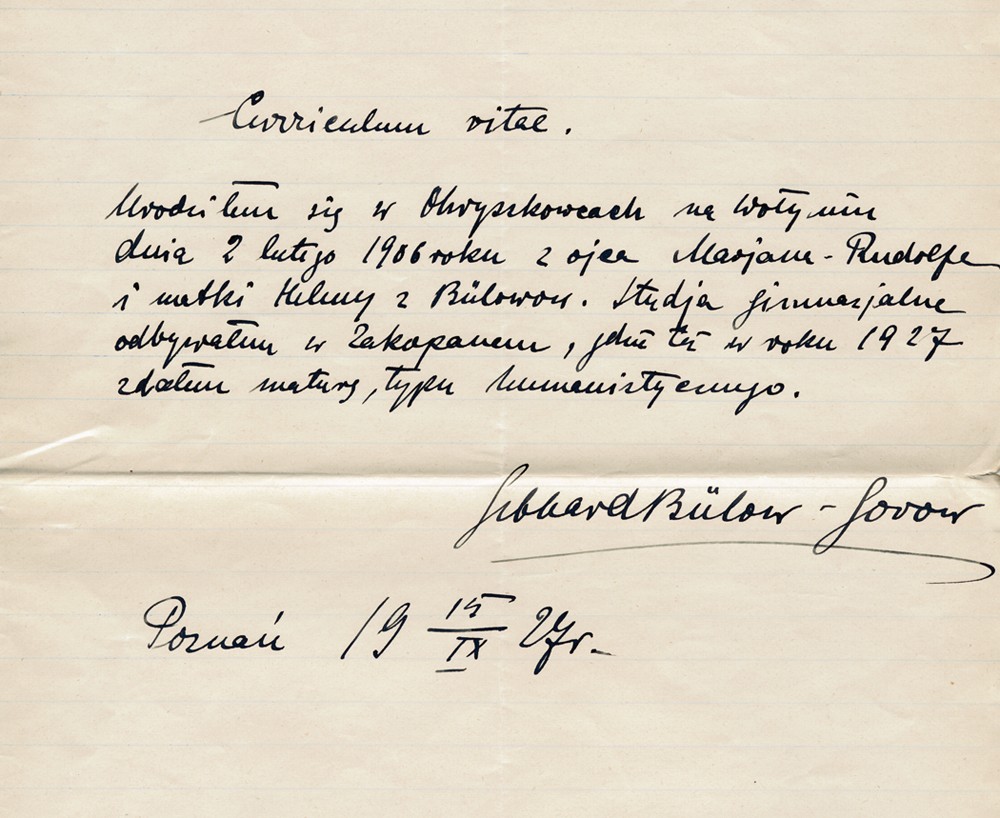 Curriculum vitae.
Urodziłem się w Okryszkowcach na Wołyniu
dnia 2 lutego 1906 roku z ojca Marjana-Rudolfa
i matki Heleny z Bülowow. Studja gimnazjalne
odbywałem w Zakopanem, gdzie też w roku 1927
zdałem maturę, typu humanistycznego.
Gebhard Bülow - Gorow
Poznań 19 15/IX 27r.